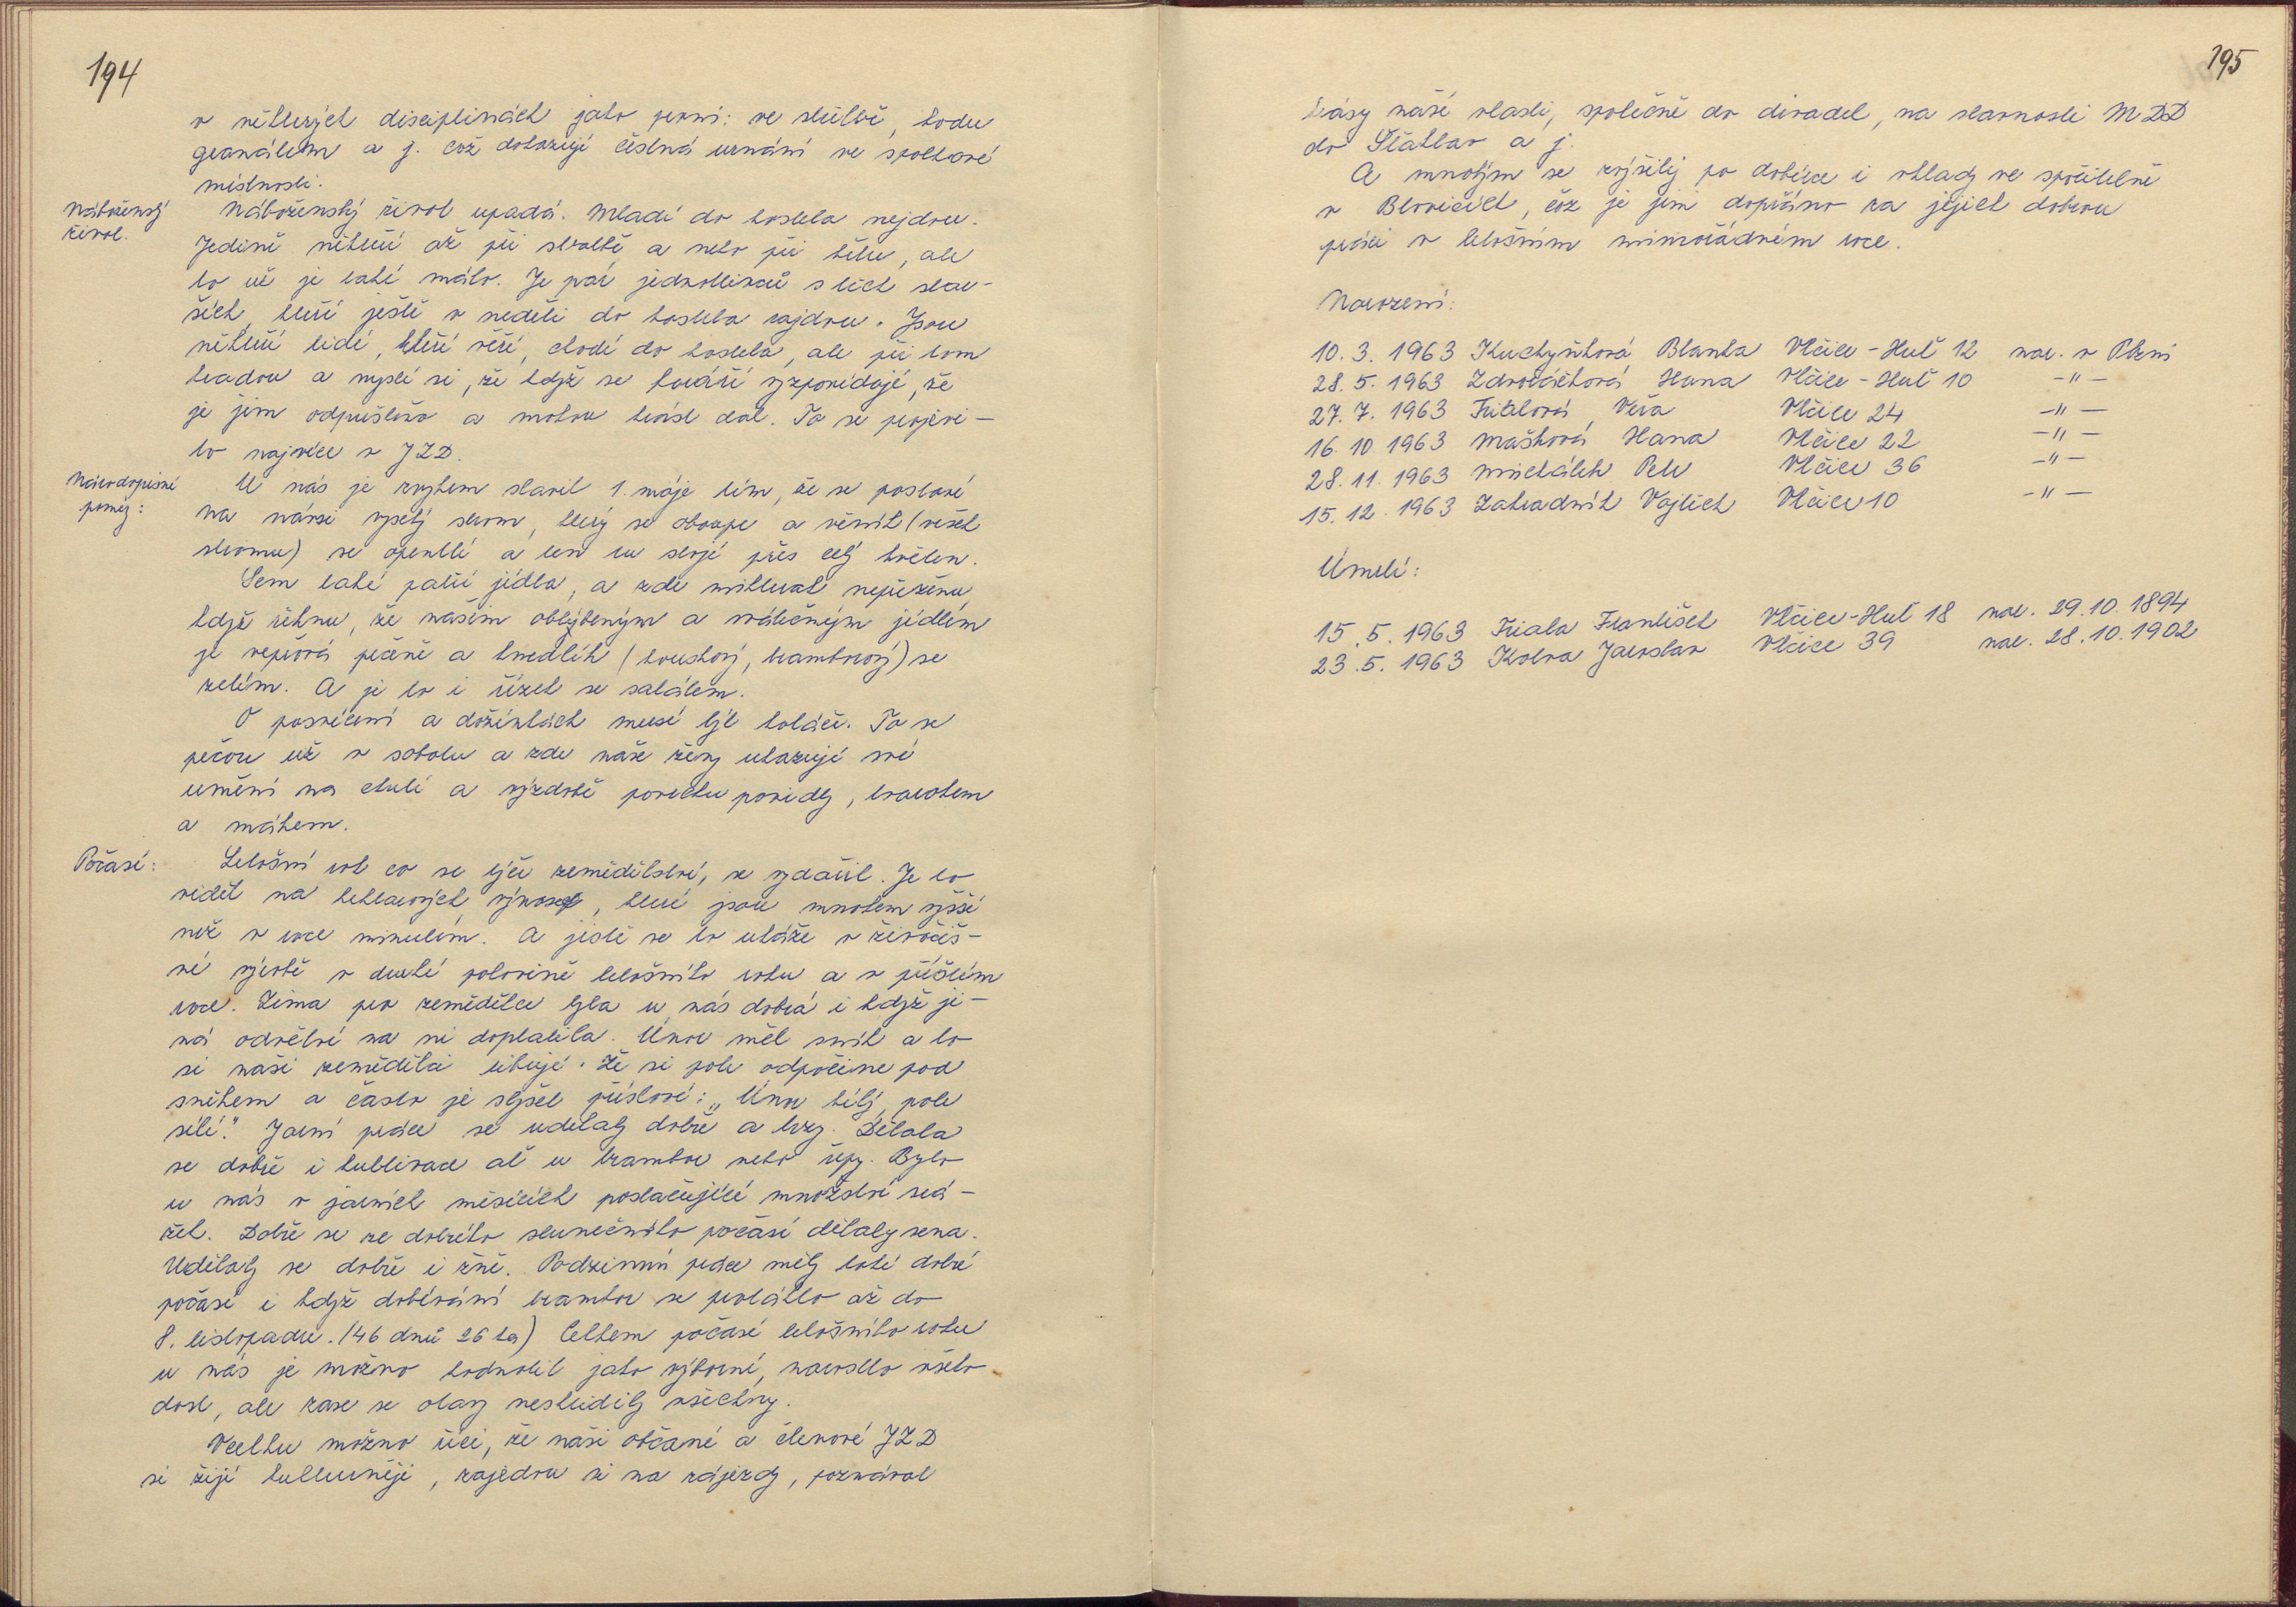 194
v některých disciplinách jako první: ve střelbě, hodu
granátem a j. což dokazují čestná uznání ve spolkové
místnosti.
Náboženský
život.
Náboženský život upadá. Mladí do kostela nejdou.
Jedině někteří až při svatbě a nebo při křtu, ale
to už je také málo. Je pár jednotlivců s těch star-
ších, kteří ještě v neděli do kostela zajdou. Jsou
někteří lidé, kteří věří, chodí do kostela, ale při tom
kradou a myslí si, že když se faráři vyzpovídají, že
je jim odpuštěno a mohou krást dál. To se projevi-
lo nejvíce v JZD.
Národopisné
poměry:
U nás je zvykem slavit 1. máje tím, že se postaví
na návsi vysoký strom, který se oloupe a věník (vršek
stromu) se opentlí a ten tu stojí přes celý květen.
Sem také patří jídla, a zde nikterak nepřeženu,
když řeknu, že naším oblíbeným a svátečným jídlem
je vepřová pečeně a knedlík (houskový, bramborový) se
zelím. A je to i řízek se salátem.
O posvícení a dožínkách musí být koláče. Ta se
pečou už v sobotu a zde naše ženy ukazují své
umění na chuti a výzdobě povrchu povidly, tvarohem
a mákem.
Počasí:
Letošní rok co se týče zemědělství, se vydařil. Je to
vidět na hektarových výnosech, které jsou mnohem vyšší
než v roce minulém. A jistě se to ukáže v živočiš-
né výrobě v druhé polovině letošního roku a v příštím
roce. Zima pro zemědělce byla u nás dobrá i když ji-
ná odvětví na ni doplatila. Únor měl sníh a to
si naši zemědělci libují. Že si pole odpočine pod
sněhem a často je slyšet přísloví: „Únor bílý, pole
sílí." Jarní práce se udělaly dobře a brzy. Dělala
se dobře i kultivace ať u brambor nebo řepy. Bylo
u nás v jarních měsících postačující množství srá-
žek. Dobře se ze dobrého slunečního počasí dělaly sena.
Udělaly se dobře i žně. Podzimní práce měly také dobré
počasí i když dobývání brambor se protáhlo až do
8. listopadu. (46 dnů 26 ha) Celkem počasí letošního roku
u nás je možno hodnotit jako výborné, narostlo všeho
dost, ale zase se otavy nesklidily všechny.
Vcelku možno říci, že naši občané a členové JZD
si žijí kulturněji, zajedou si na zájezdy, poznávat
195
krásy naší vlasti, společně do divadel, na slavnosti MDD
do Štáhlav a j.
A mnohým se zvýšily po dobírce i vklady ve spořitelně
v Blovicích, což je jim dopřáno za jejich dobrou
práci v letošním mimořádném roce.
Narození:
10. 3. 1963 Kuchyňková Blanka Vlčice-Huť 12 nar. v Plzni
28. 5. 1963 Zdrovičková Hana Vlčice-Huť 10 -"-
27. 7. 1963 Fialová Věra Vlčice 24 -"-
16. 10. 1963 Mašková Hana Vlčice 22 -"-
28. 11. 1963 Michálek Petr Vlčice 36 -"-
15. 12. 1963 Zahradník Vojtěch Vlčice 10 -"-
Úmrtí:
15. 5. 1963 Fiala František Vlčice-Huť 18 nar. 29.10.1894
23. 5. 1963 Kolva Jaroslav Vlčice 39 nar. 28.10.1902